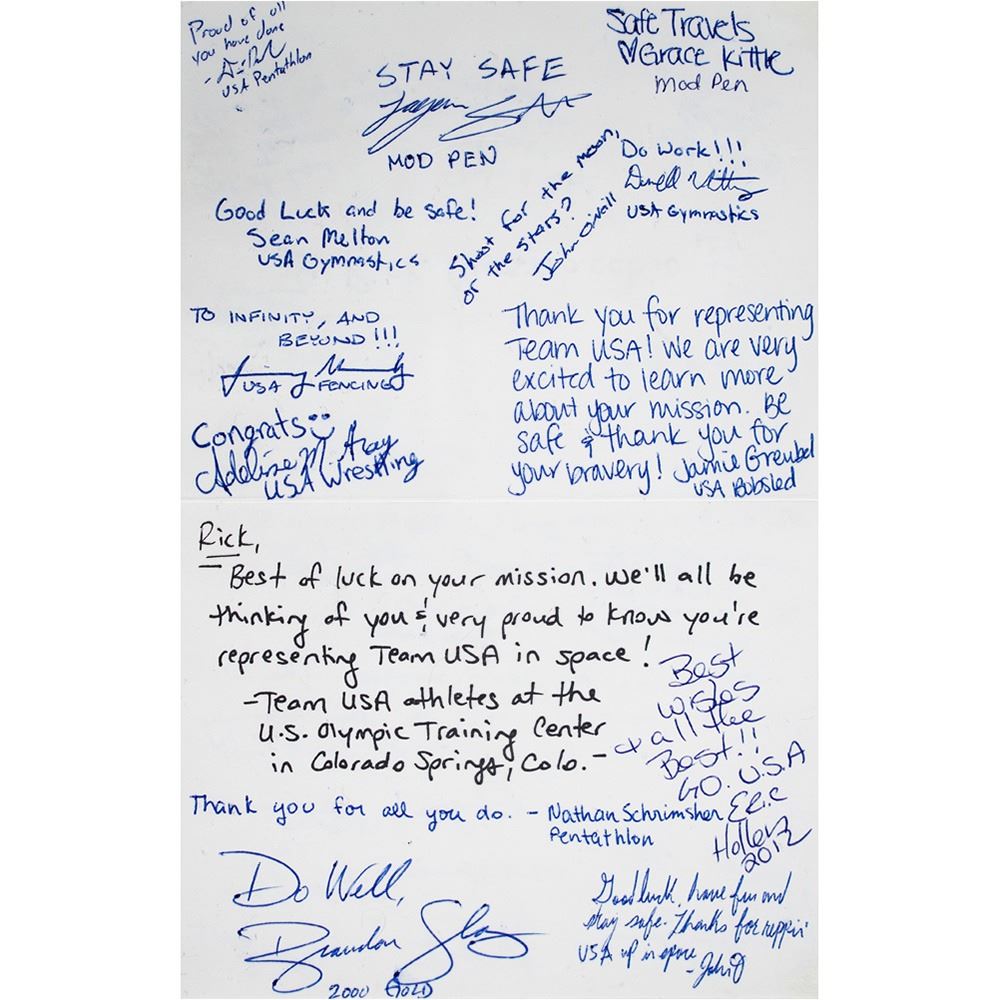 Proud of all
you have done
USA Pentathlon
STAY SAFE
MOD PEN
Safe Travels
♡Grace Kittle
Mod Pen
Shoot for the moon,
or the stars?
John O'neill
Do Work!!!
USA Gymnastics
Good Luck and be safe!
Sean Melton
USA Gymnastics
TO INFINITY, AND
BEYOND!!!
USA FENCING
Congrats
Adeline M. Gray
USA Wrestling
Thank you for representing
Team USA! We are very
excited to learn more
about your mission. Be
safe & thank you for
your bravery! Jamie Greubel
USA Bobsled
Rick,
Best of luck on your mission. We'll all be
thinking of you & very proud to know you're
representing Team USA in space!
-Team USA athletes at the
U.S. Olympic Training Center
in Colorado Springs, Colo.-
Best
wishes
+ all the
Best!!
GO. U.S.A
Eric
2012
Thank you for all you do. - Nathan Schrimsher
Pentathlon
Do Well,
Brandon Slay
2000 GOLD
Good luck, have fun and
stay safe. Thanks for reppin'
USA up in space